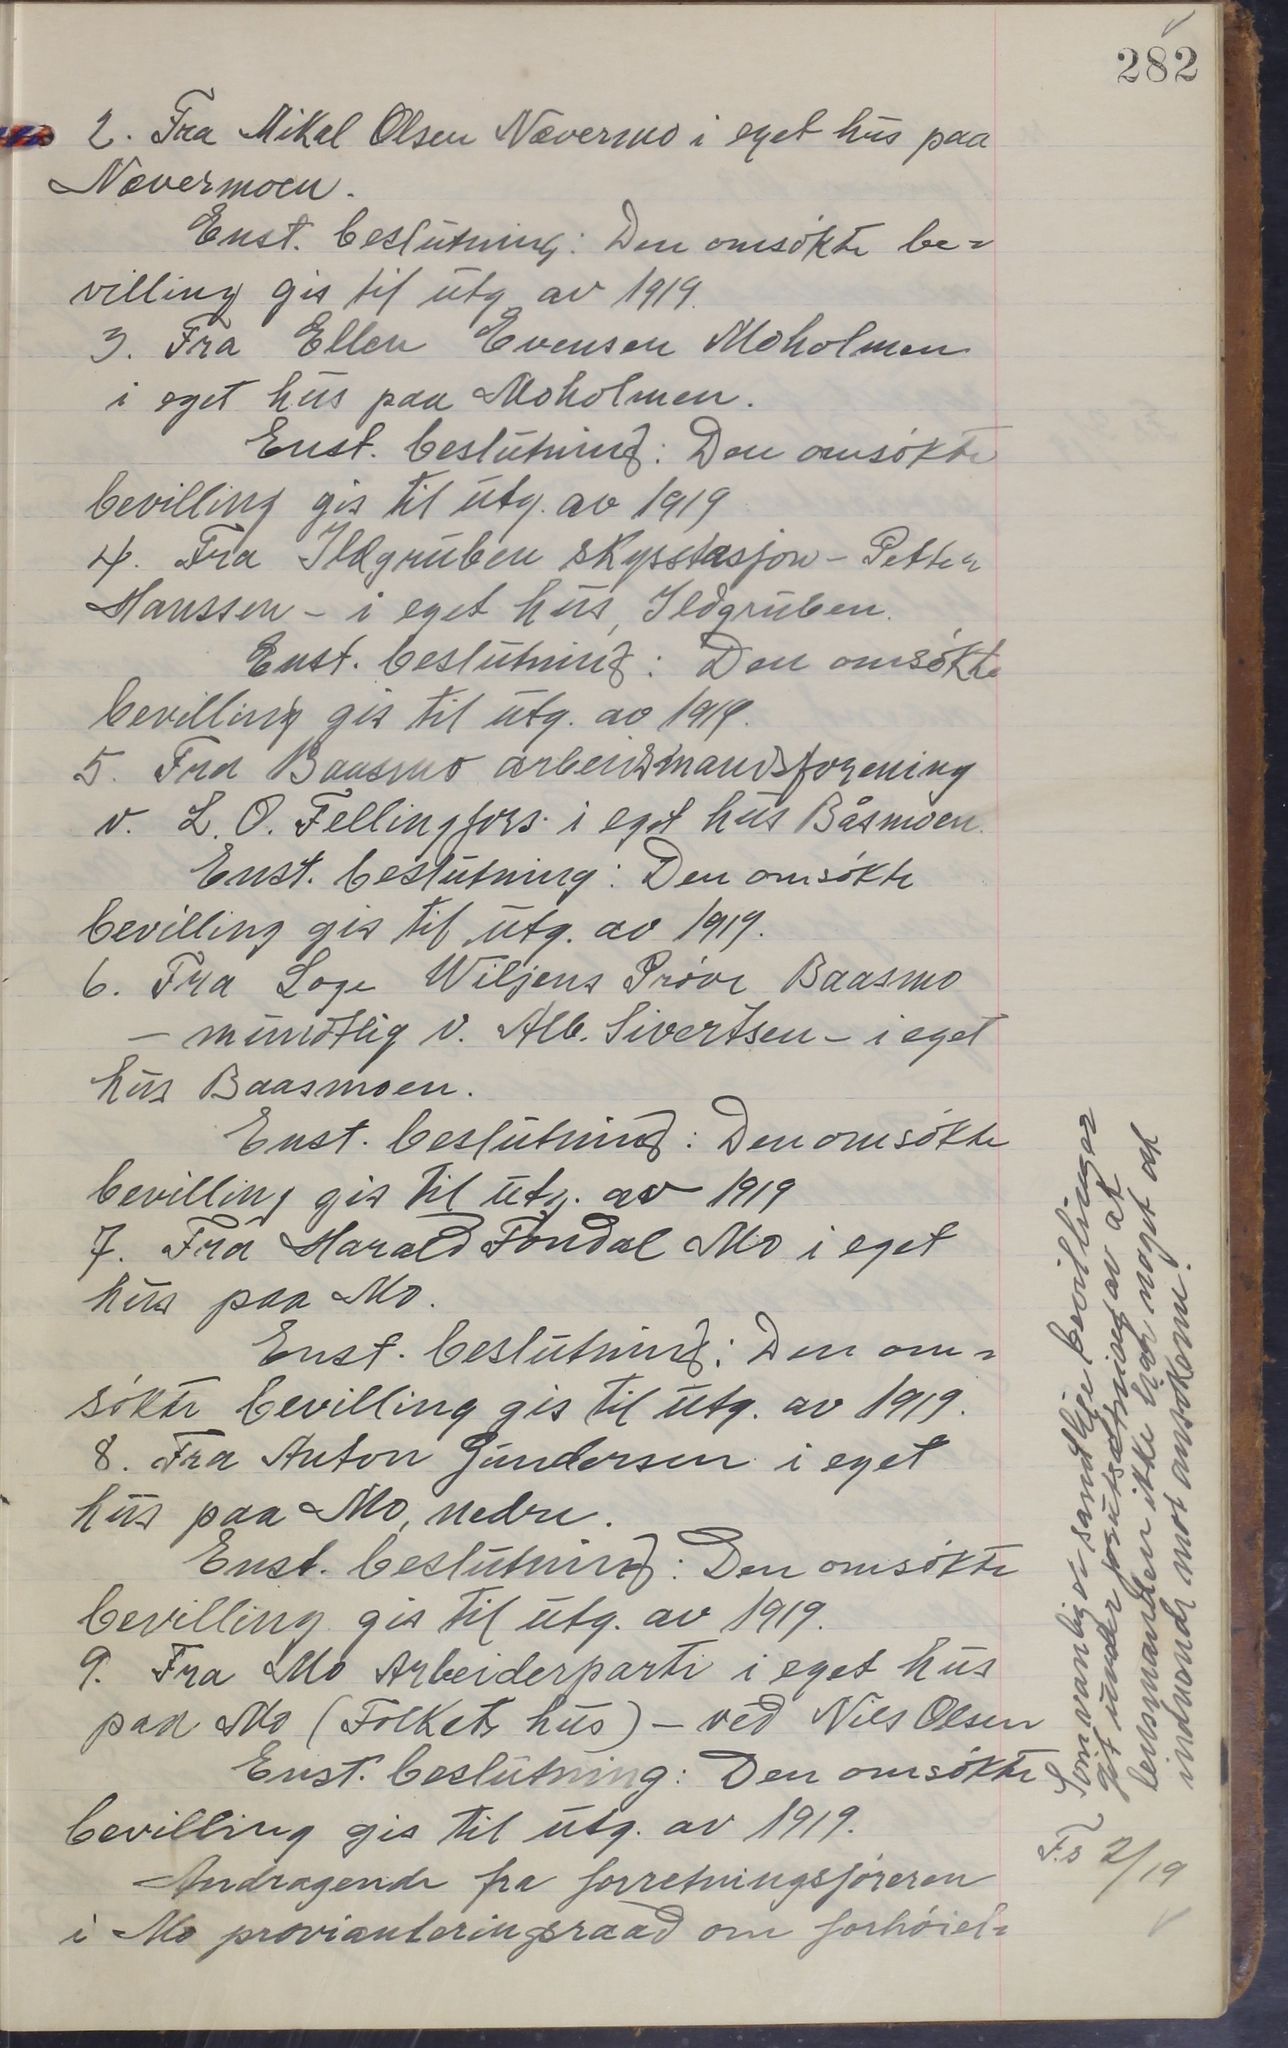 282
2. Fra Mikal Olsen Nævermo i eget hus paa
Nævermoen.
Enst. beslutning: Den omsøkte be-
villing gis til utg av 1919.
3. Fra Ellen Evensen Moholmen
i eget hus paa Moholmen.
Enst. beslutning: Den omsøkte
bevilling gis til utg. av 1919
4. Fra Ildgruben skysstasjon - Petter
Hanssen - i eget hus, Ildgruben.
Enst. beslutning: Den omsøkte
bevilling gis til utg. av 1919.
5. Fra Baasmo arbeidsmandsforening
v. L. O. Fellingfors i eget hus Båsmoen.
Enst. beslutning: Den omsøkte
bevilling gis til utg. av 1919.
6. Fra Loge Wiljens Prøve Baasmo
- mundtlig v. Alb. Sivertsen - i eget
hus Baasmoen.
Enst. beslutning: Den omsøkte
bevilling gis til utg. av 1919
7. Fra Harald Fondal Mo i eget
hus paa Mo.
Enst. beslutning: Den om-
søkte bevilling gis til utg. av 1919.
8. Fra Anton Gundersen i eget
hus paa Mo, nedre.
Enst. beslutning: Den omsøkte
bevilling gis til utg. av 1919.
9. Fra Mo Arbeiderparti i eget hus
paa Mo (Folkets hus) - ved Nils Olsen
Enst. beslutning: Den omsøkte
bevilling gis til utg. av 1919.
Andragende fra forretningsføreren
i Mo provianteringsraad om forhøiel-
Som vanlig er samtlige bevillinger
git under forutsætning av at
lensmanden ikke har noget at
indvende mot ansøkerne.
F.s 2/19